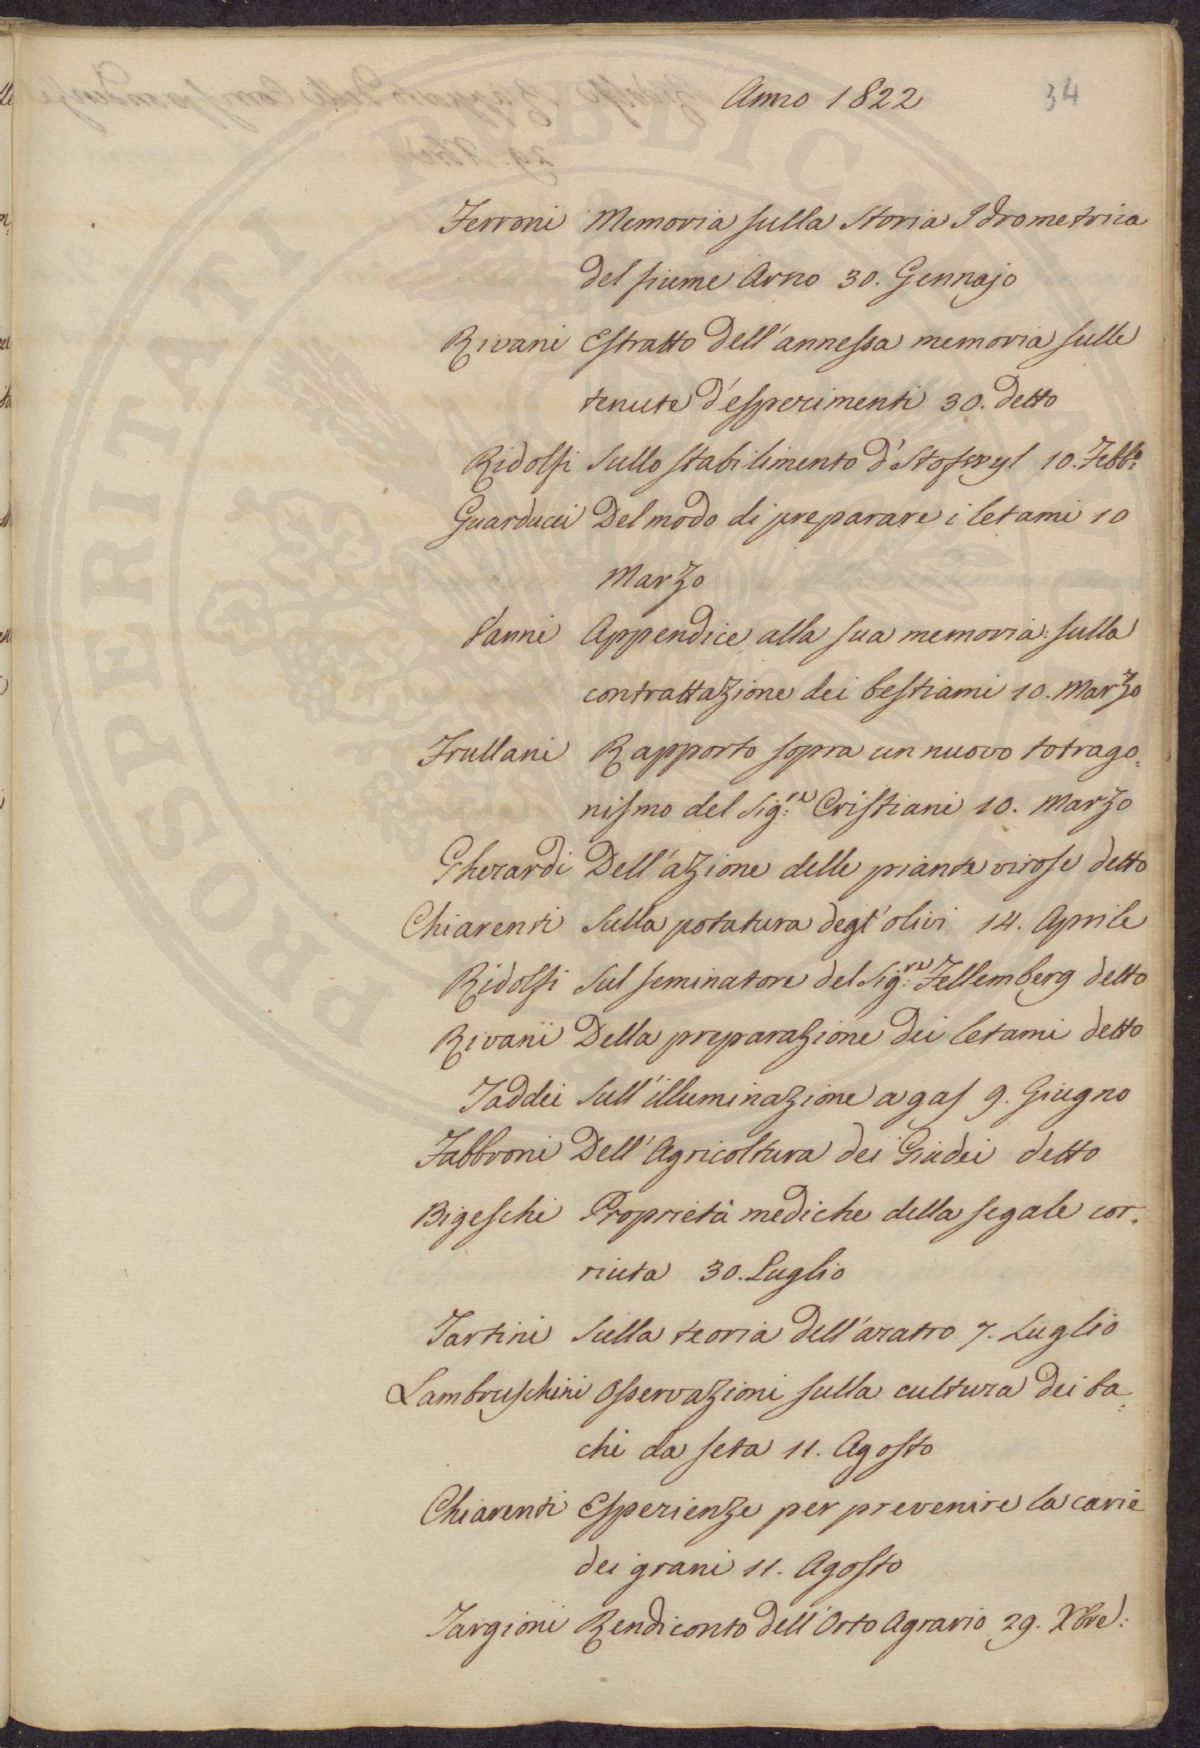 Anno 1822
34
Ferroni Memoria sulla Storia Idrometrica
del fiume Arno 30. Gennajo
Rivani Estratto dell'annessa memoria sulle
tenute d'esperimenti 30. detto
Ridolfi Sullo stabilimento d'Stofwyl 10. Febb:
Guarducci Del modo di preparare i letami 10
Marzo
Vanni Appendice alla sua memoria sulla
contrattazione dei bestiami 10. Marzo
Frullani Rapporto sopra un nuovo totrago=
nismo del Sig:re Cristiani 10. Marzo
Gherardi Dell'azione delle piante virose detto
Chiarenti Sulla potatura degl'olivi 14. Aprile
Ridolfi Sul seminatore del Sig:re Fellemberg detto
Rivani Della preparazione dei letami detto
Taddei Sull'illuminazione a gas 9. Giugno
Fabbroni Dell'Agricoltura dei Giudei detto
Bigeschi Proprietà mediche della segale cor=
niuta 30. Luglio
Tartini Sulla teoria dell'aratro 7. Luglio
Lambruschini Osservazioni sulla cultura dei ba=
chi da seta 11. Agosto
Chiarenti Esperienze per prevenire la carie
dei grani 11. Agosto
Targioni Rendiconto dell'Orto Agrario 29. Xbre:
PROSPERITATI PUBLICAE